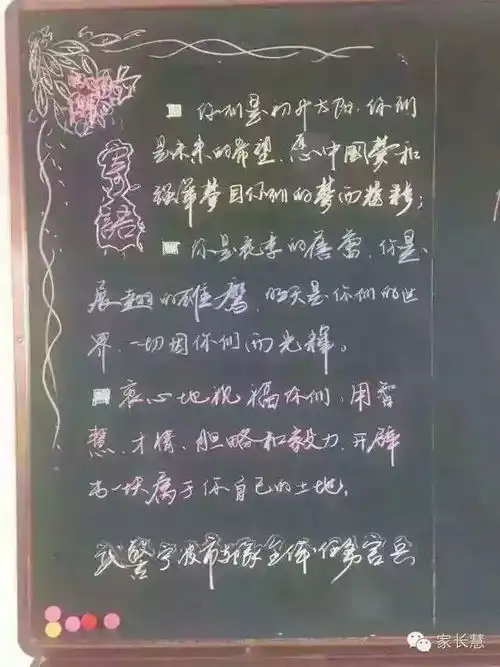 寄语
你们是初升太阳,你们
是未来的希望,愿中国梦和
强军梦因你们的梦而精彩;
你是花季的蓓蕾,你是
展翅的雄鹰,明天是你们的世
界,一切因你们而光辉。
衷心地祝福你们,用智
慧,才情,胆略和毅力,开辟
出一块属于你自己的土地。
武警宁波市支队全体任务官兵
家长慧